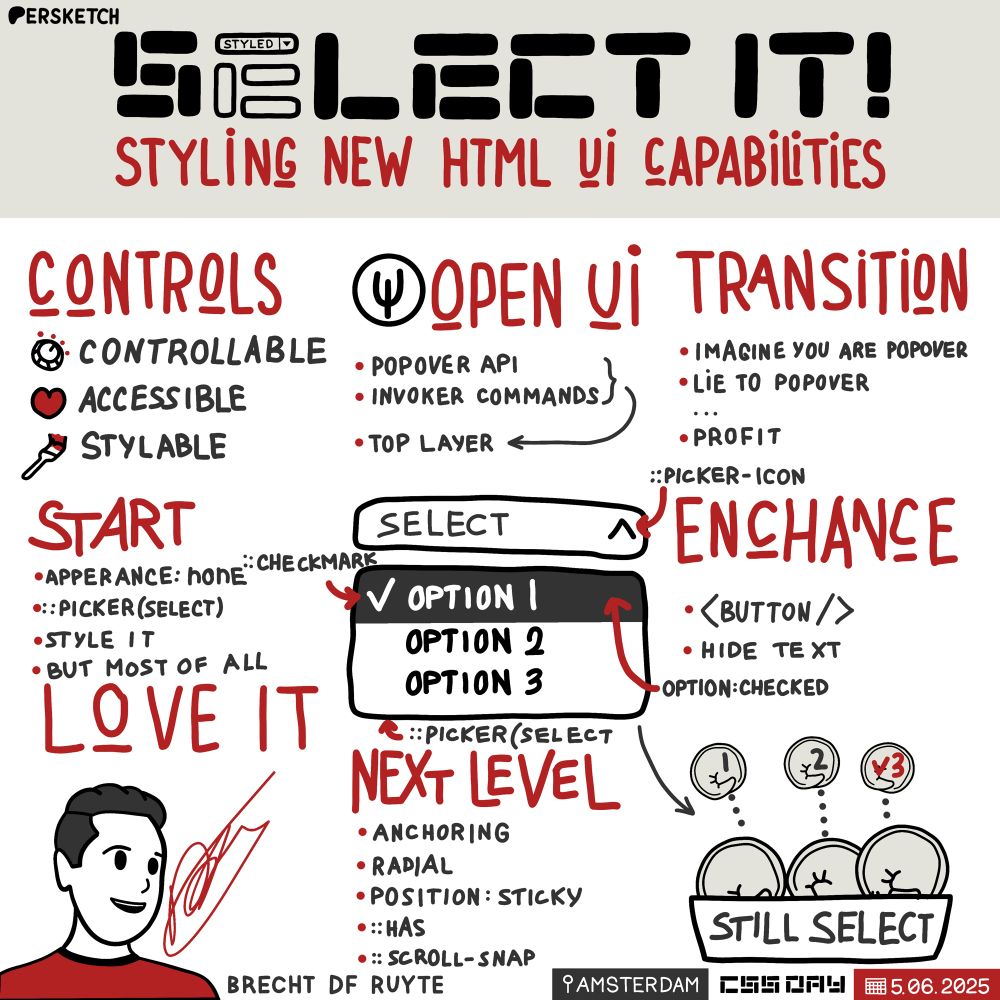 PERSKETCH
SELECT IT!
STYLED
STYLING NEW HTML UI CAPABILITIES
CONTROLS
CONTROLLABLE
ACCESSIBLE
STYLABLE
OPEN UI
• POPOVER API
• INVOKER COMMANDS
• TOP LAYER
TRANSITION
• IMAGINE YOU ARE POPOVER
• LIE TO POPOVER
...
• PROFIT
START
• APPERANCE: NONE
• ::PICKER(SELECT)
• STYLE IT
• BUT MOST OF ALL
LOVE IT
::PICKER-ICON
SELECT
::CHECKMARK
✓ OPTION 1
OPTION 2
OPTION 3
::PICKER(SELECT
ENCHANCE
• <BUTTON/>
• HIDE TEXT
OPTION:CHECKED
NEXT LEVEL
• ANCHORING
• RADIAL
• POSITION: STICKY
• ::HAS
• ::SCROLL-SNAP
1
2
3
STILL SELECT
BRECHT DF RUYTE
AMSTERDAM
CSS DAY
5.06.2025